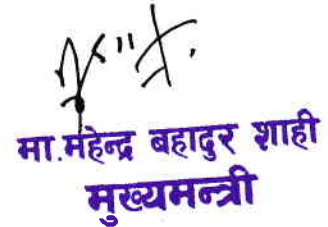 मा.महेन्द्र बहादुर शाही
मुख्यमन्त्री